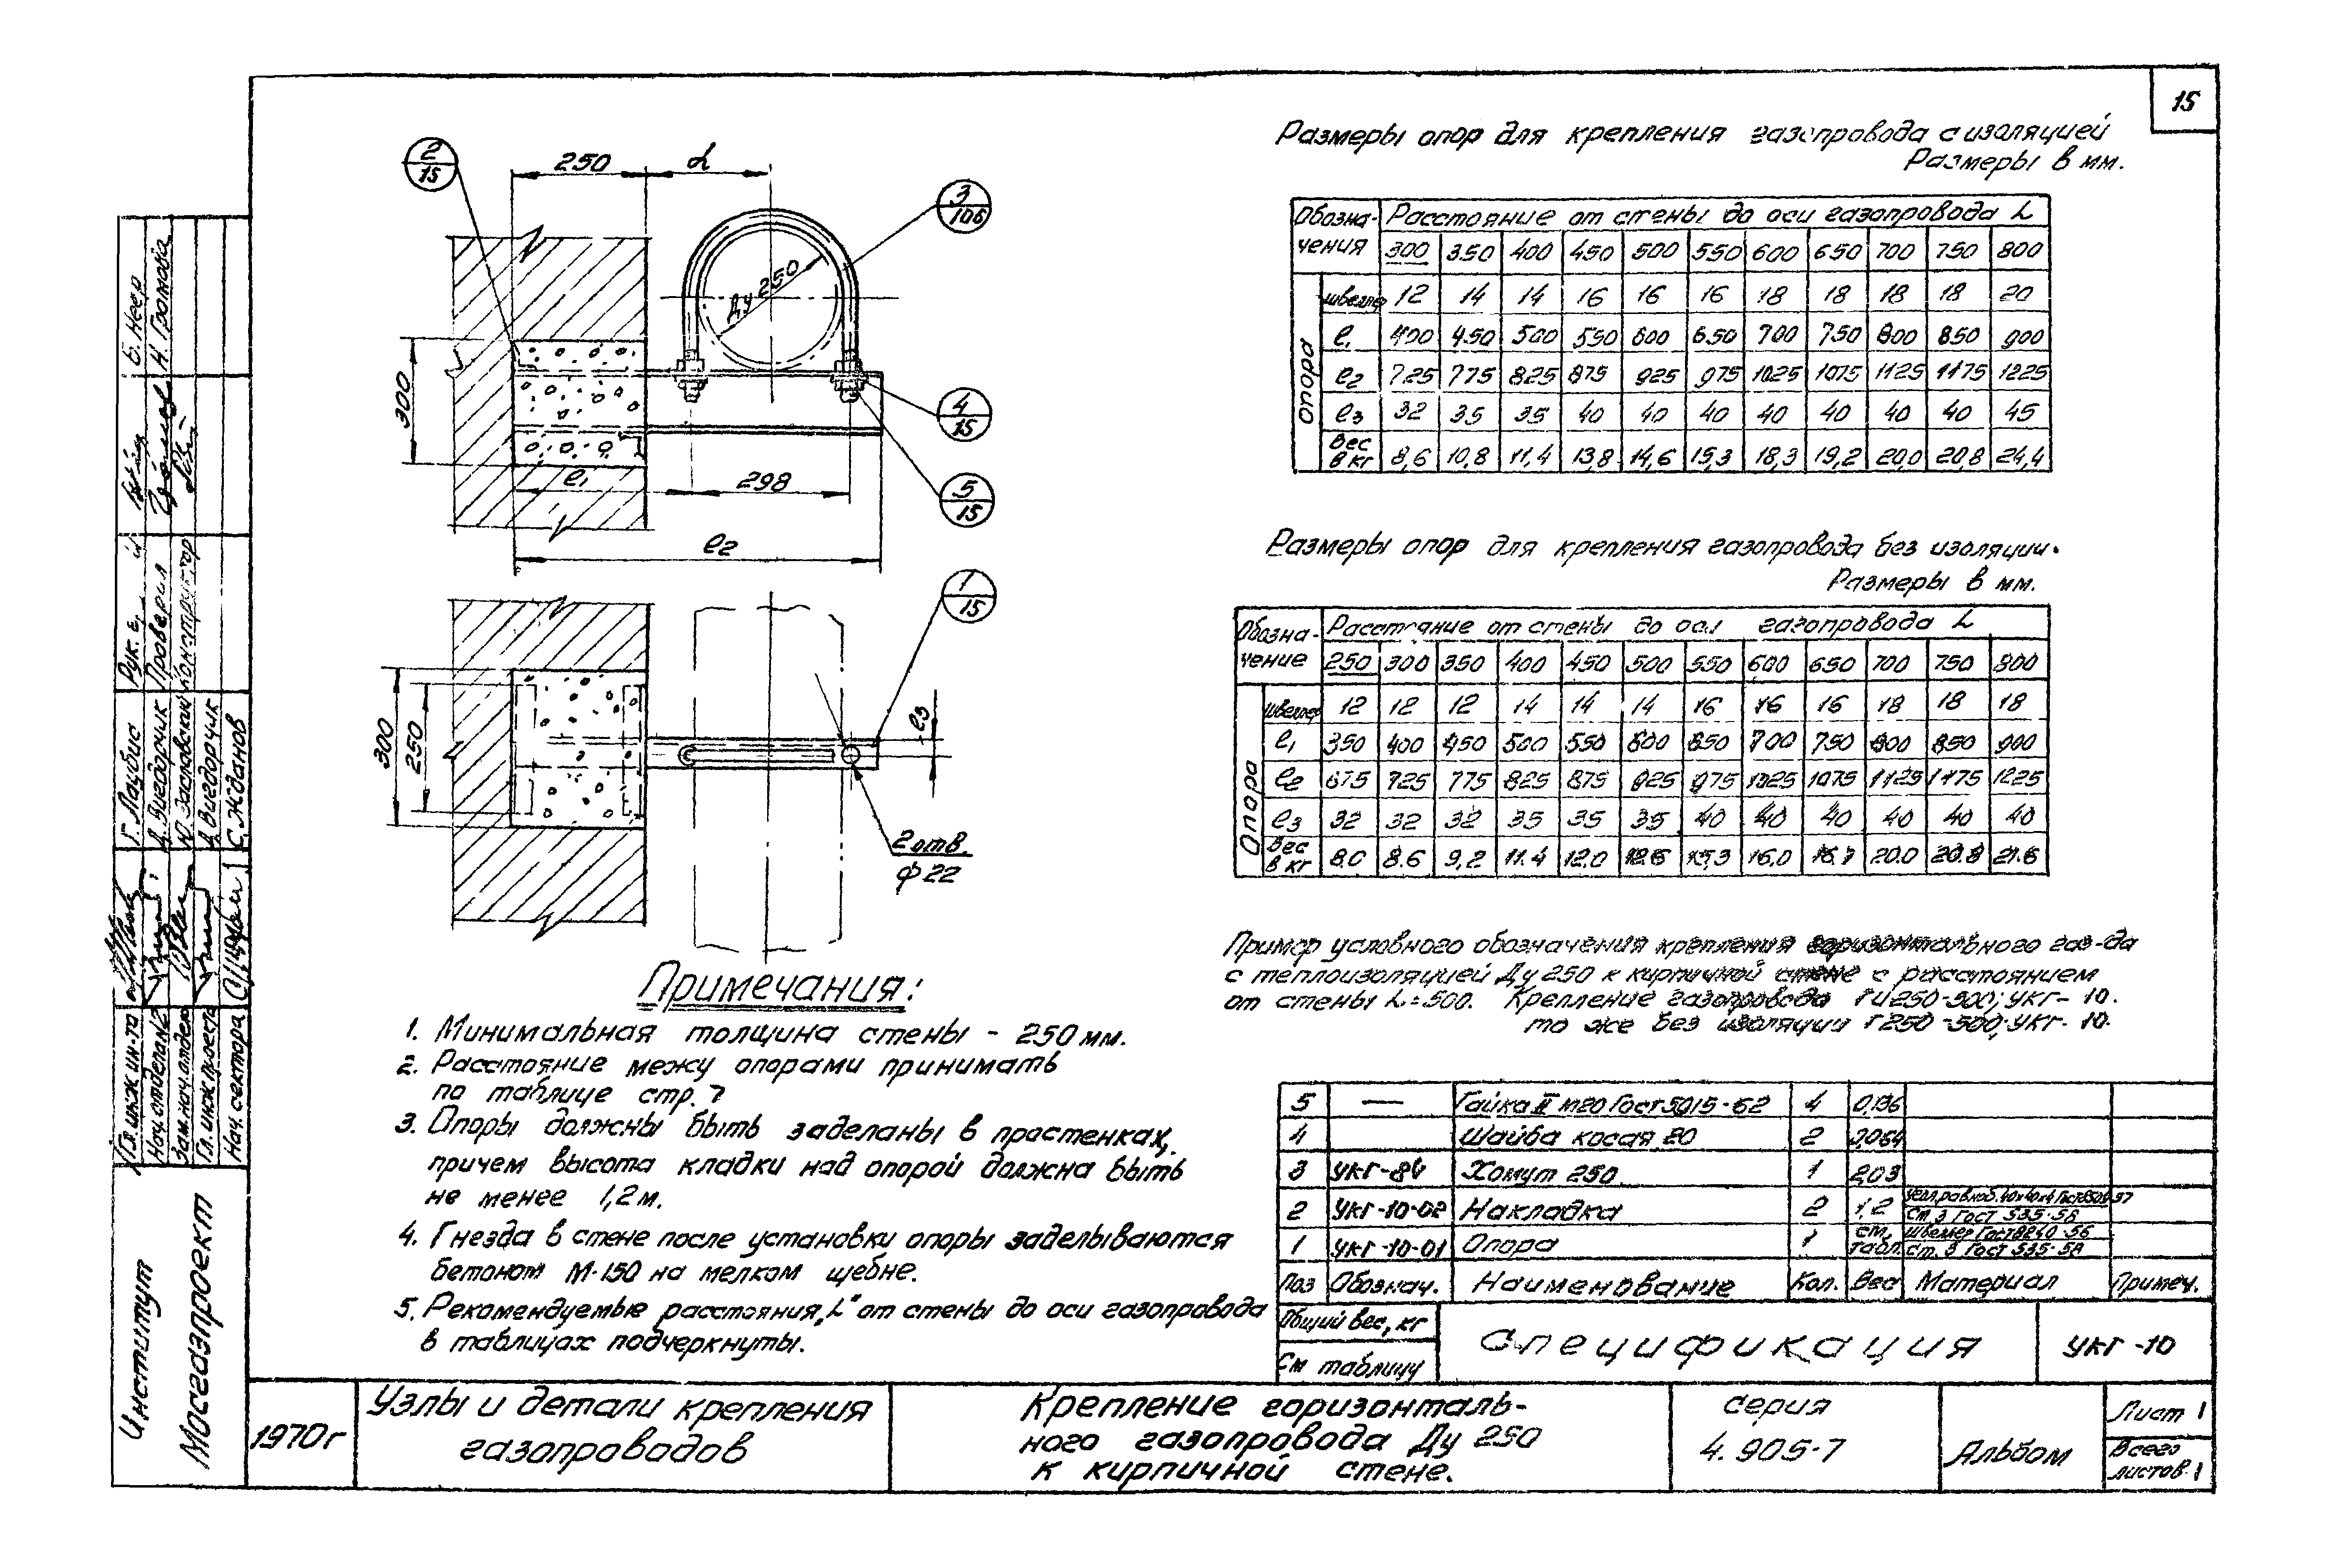 15
2
15
250
L
3
106
Ду 250
300
4
15
5
15
l1
298
l2
1
15
300
250
l3
2 отв.
ф 22
Размеры опор для крепления газопровода с изоляцией
Размеры в мм.
Обозна-
чения
Расстояние от стены до оси газопровода L
300 350 400 450 500 550 600 650 700 750 800
Опора
швеллер 12 14 14 16 16 16 18 18 18 18 20
l1 400 450 500 550 600 650 700 750 800 850 900
l2 725 775 825 875 925 975 1025 1075 1125 1175 1225
l3 32 35 35 40 40 40 40 40 40 40 45
Вес в кг 8,6 10,8 11,4 13,8 14,6 15,3 18,3 19,2 20,0 20,8 24,4
Размеры опор для крепления газопровода без изоляции.
Размеры в мм.
Обозна-
чение
Расстояние от стены до оси газопровода L
250 300 350 400 450 500 550 600 650 700 750 800
Опора
швеллер 12 12 12 14 14 14 16 16 16 18 18 18
l1 350 400 450 500 550 600 650 700 750 800 850 900
l2 675 725 775 825 875 925 975 1025 1075 1125 1175 1225
l3 32 32 32 35 35 35 40 40 40 40 40 40
Вес в кг 8.0 8.6 9,2 11.4 12.0 12.6 15,3 16,0 16.7 20.0 20.8 21.6
Пример условного обозначения крепления горизонтального газ-да
с теплоизоляцией Ду 250 к кирпичной стене с расстоянием
от стены L=500. Крепление газопровода ГИ250-500; УКГ-10.
то же без изоляции Г250-500; УКГ-10.
Примечания:
1. Минимальная толщина стены - 250 мм.
2. Расстояние межу опорами принимать
по таблице стр. 7
3. Опоры должны быть заделаны в простенках,
причем высота кладки над опорой должна быть
не менее 1,2 м.
4. Гнезда в стене после установки опоры заделываются
бетоном М-150 на мелком щебне.
5. Рекомендуемые расстояния „L" от стены до оси газопровода
в таблицах подчеркнуты.
5 — Гайка II М20 Гост 5915-62 4 0,136
4 Шайба косая 20 2 0,064
3 УКГ-84 Хомут 250 1 2,03
2 УКГ-10-02 Накладка 2 1,2 угол. равноб. 40х40х4 Гост 8509-57
Ст. 3 Гост 535-58
1 УКГ-10-01 Опора 1 см. табл. швеллер Гост 8240-56
Ст. 3 Гост 535-58
Поз Обознач. Наименование Кол. Вес Материал Примеч.
Общий вес, кг
См таблицу
Спецификация
УКГ-10
1970г
Узлы и детали крепления
газопроводов
Крепление горизонталь-
ного газопровода Ду 250
к кирпичной стене.
серия
4.905-7
Альбом
Лист 1
Всего
листов 1
Институт
Мосгазпроект
Гл. инж. ин-та
Нач. отдела №2
Зам. нач. отдела
Гл. инж. проекта
Нач. сектора
Г. Лаубис
Д. Вигдорчик
Ю. Заславский
Д. Вигдорчик
С. Жданов
Рук.
Проверил
Конструктор
Б. Неер
Н. Громова